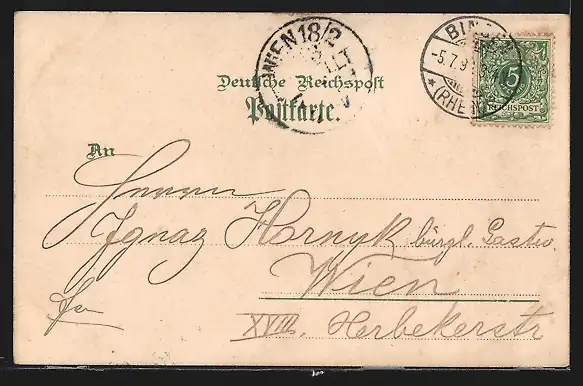 WIEN 18/2
BIN
-5.7.9
(RHE
5
REICHSPOST
Deutsche Reichspost
Postkarte.
An
Herrn
Ignaz Hornyk bürgl. Gastw.
Wien
XVIII. Herbekerstr